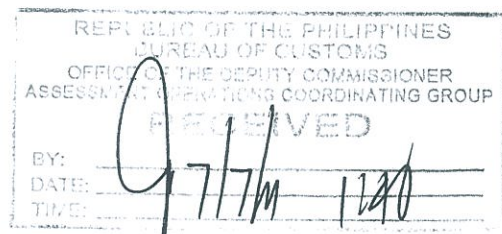 REPUBLIC OF THE PHILIPPINES
BUREAU OF CUSTOMS
OFFICE OF THE DEPUTY COMMISSIONER
ASSESSMENT OPERATIONS COORDINATING GROUP
RECEIVED
BY:
DATE: 7/7/
TIME: